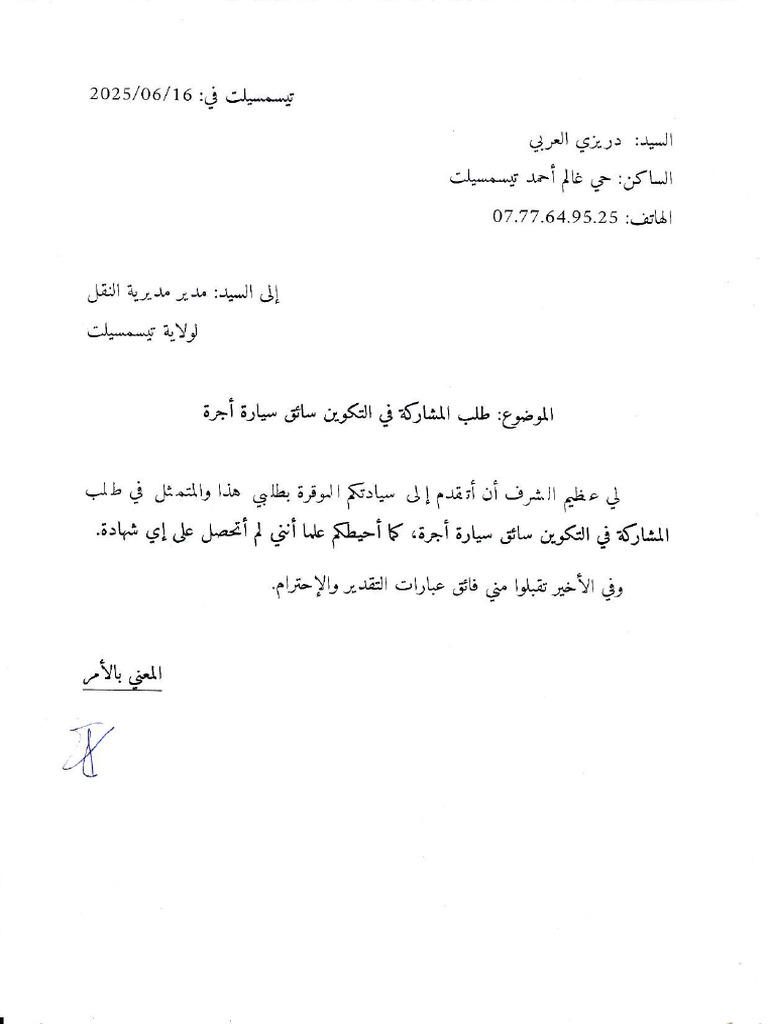 تيسمسيلت في: 2025/06/16
السيد: دريزي العربي
الساكن: حي غالم أحمد تيسمسيلت
الهاتف: 07.77.64.95.25
إلى السيد: مدير مديرية النقل
لولاية تيسمسيلت
الموضوع: طلب المشاركة في التكوين سائق سيارة أجرة
لي عظيم الشرف أن أتقدم إلى سيادتكم الموقرة بطلبي هذا والمتمثل في طلب
المشاركة في التكوين سائق سيارة أجرة، كما أحيطكم علما أنني لم أتحصل على إي شهادة.
وفي الأخير تقبلوا مني فائق عبارات التقدير والإحترام.
المعني بالأمر